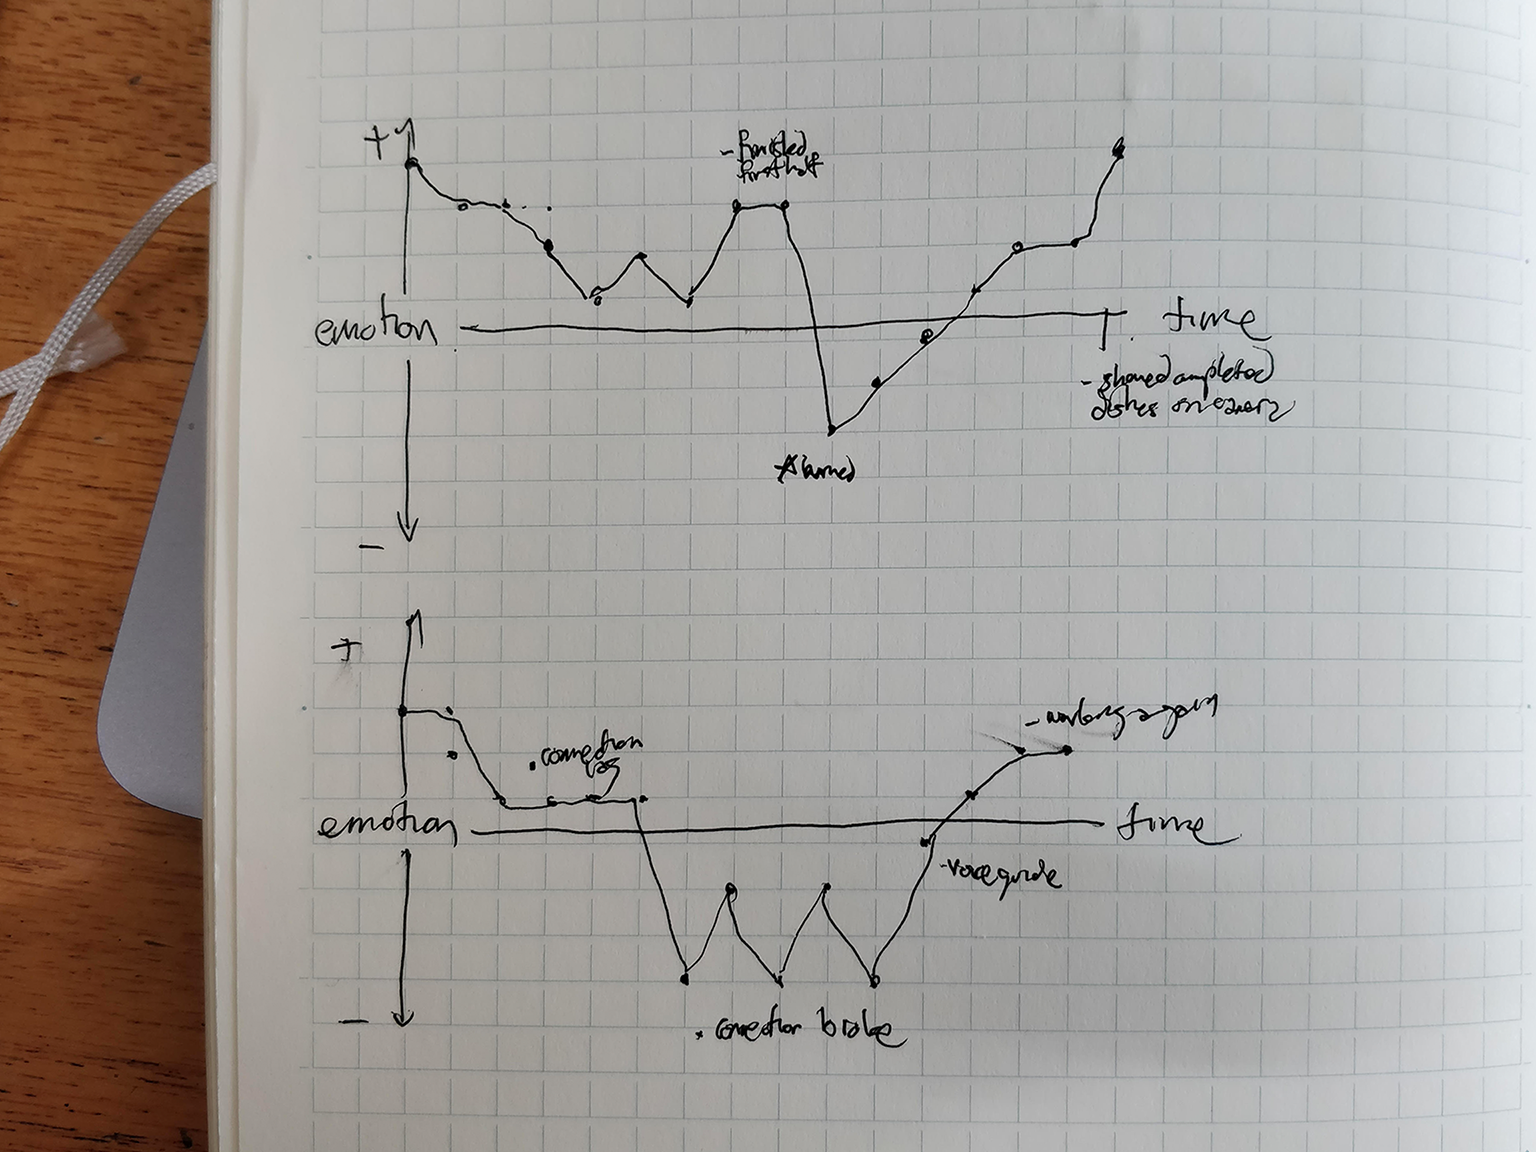 +
- finished
first half
emotion
time
- shared completed
dishes on
-
+
- working again
. connection
lag
emotion
time
- voice guide
-
. connection broke